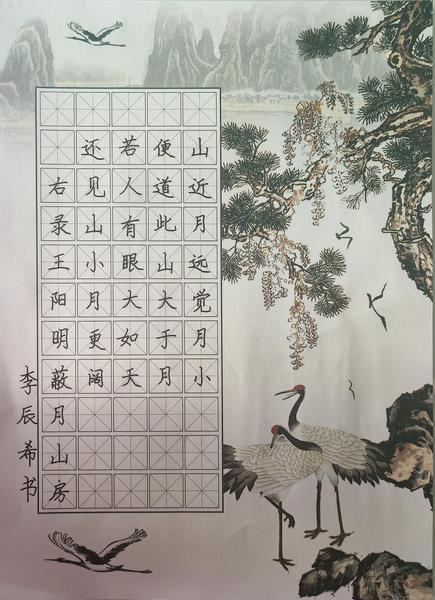 山近月远觉月小
便道此山大于月
若人有眼大如天
还见山小月更阔
右录王阳明蔽月山房
李辰希书